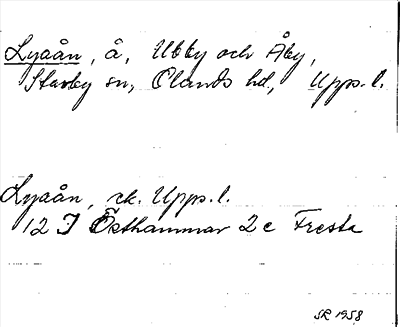 Lyaån, å, Ubby och Åby,
Stavby sn, Olands hd, Upps. l.
Lyaån, rk. Upps. l.
12 I Östhammar 2 c Fresta
SR 1958